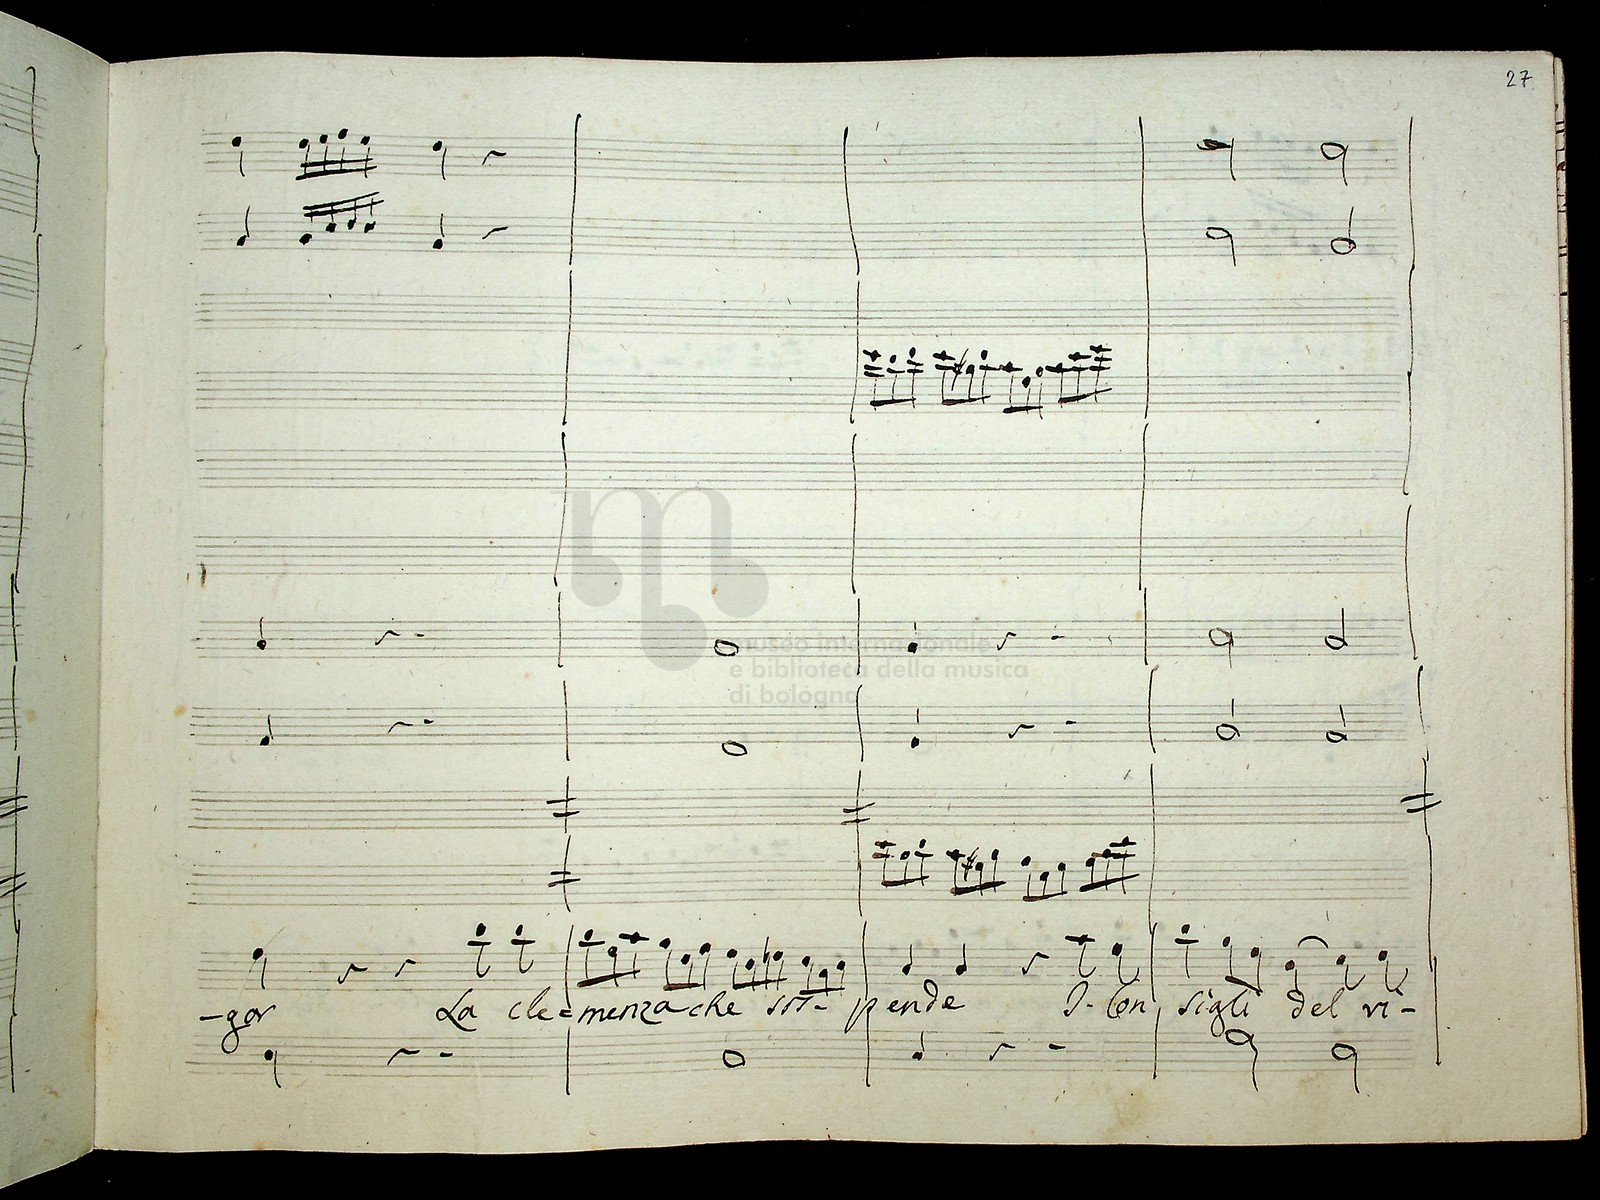 27
museo internazionale
e biblioteca della musica
di bologna
-gor La cle=menza che sos- pende I-Con sigli del vi-